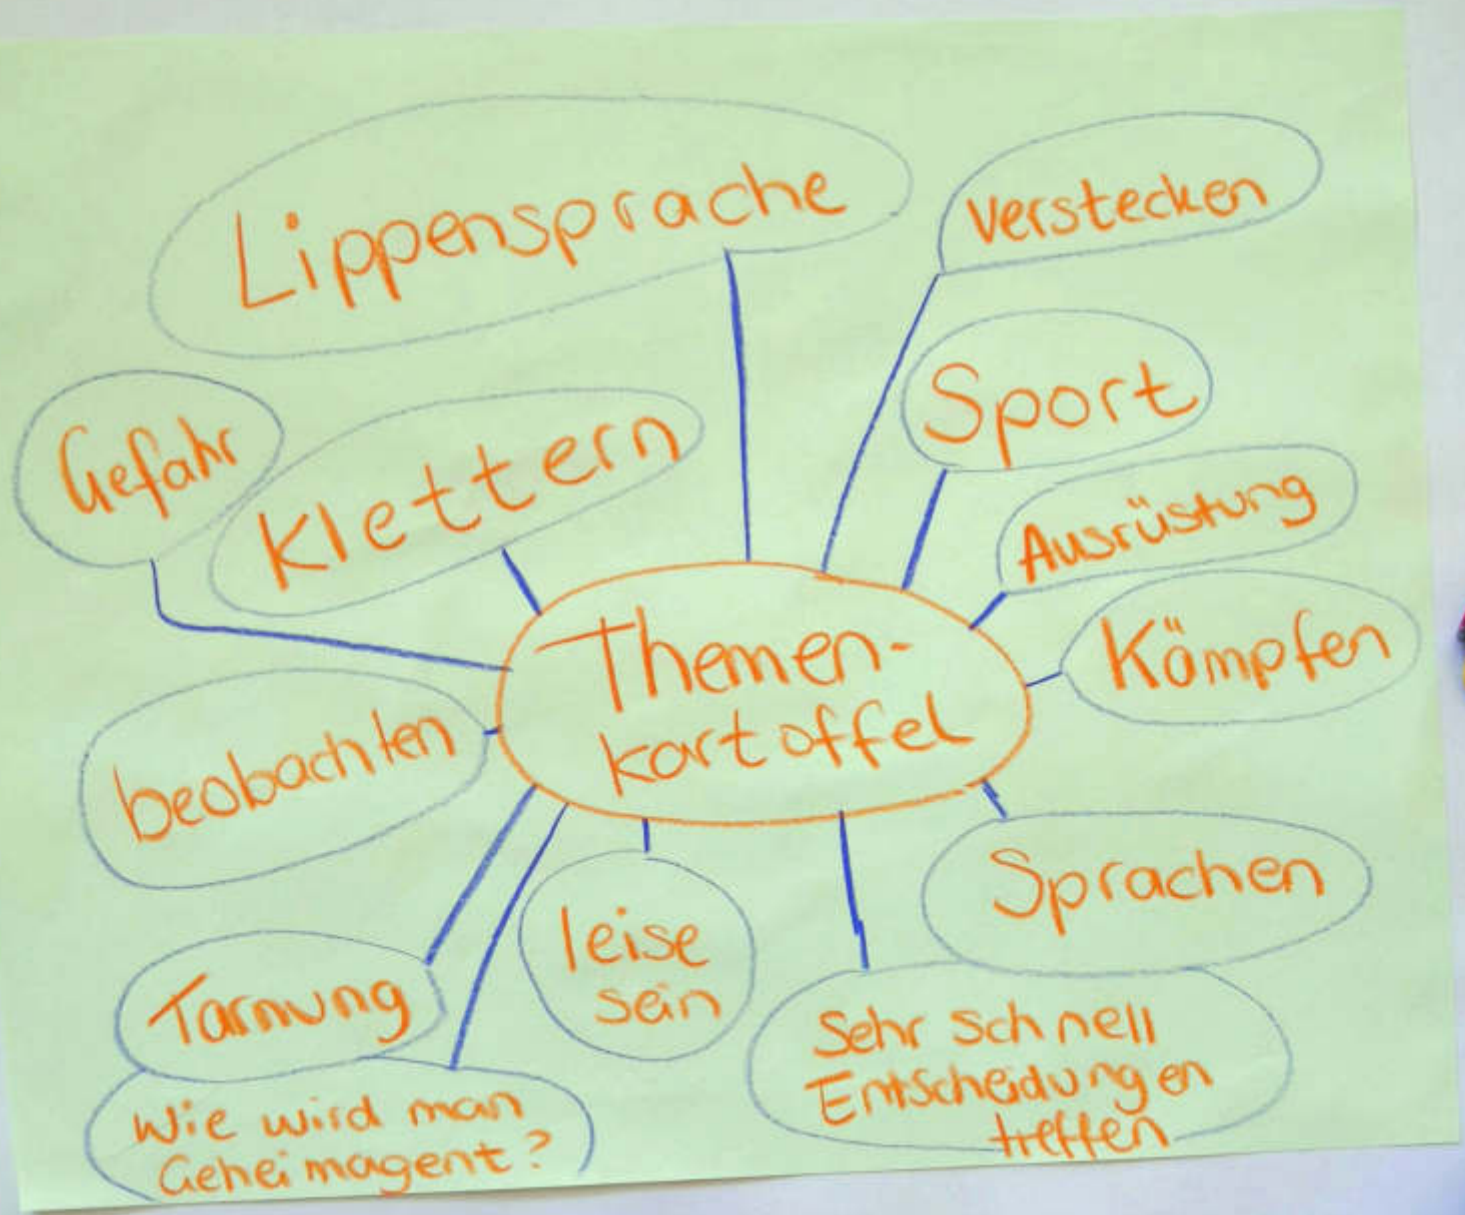 Lippensprache
Verstecken
Sport
Gefahr
Klettern
Ausrüstung
Kämpfen
Themen-
kartoffel
beobachten
Sprachen
leise
sein
Tarnung
Sehr schnell
Entscheidungen
treffen
Wie wird man
Geheimagent?